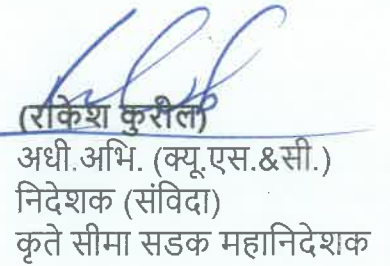 (राकेश कुरील)
अधी.अभि. (क्यू.एस.&सी.)
निदेशक (संविदा)
कृते सीमा सडक महानिदेशक